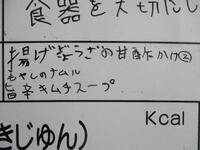 食器を大切にし
揚げぎょうざの甘酢かけ②
もやしのナムル
旨辛キムチスープ
Kcal
きじゅん)